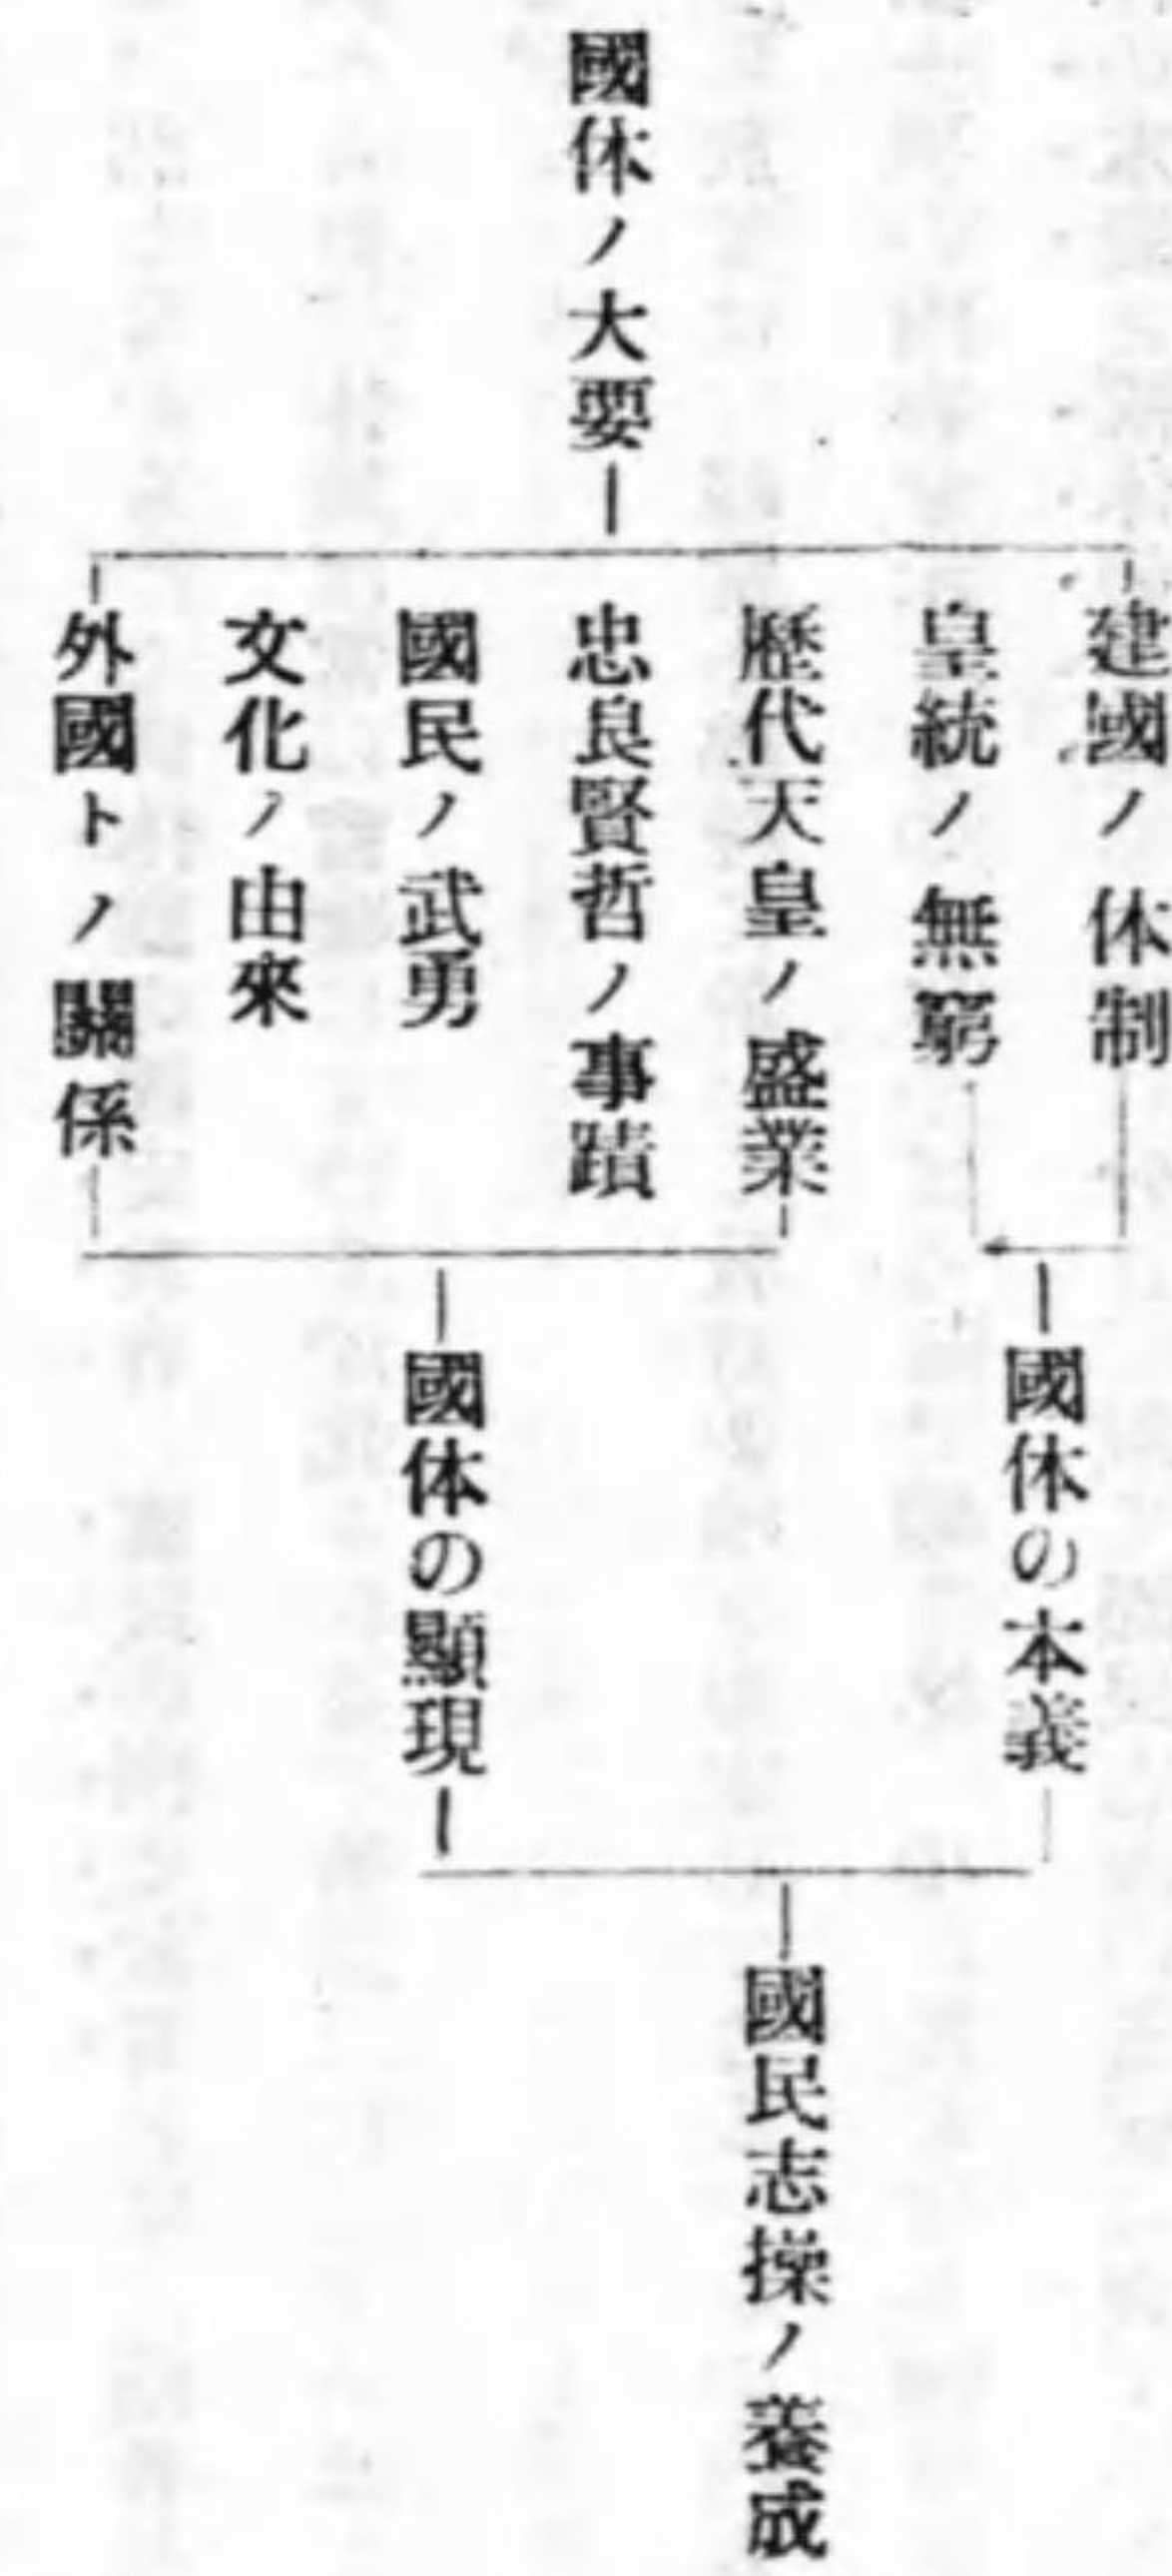 國体ノ大要
建國ノ体制
皇統ノ無窮
歷代天皇ノ盛業
忠良賢哲ノ事蹟
國民ノ武勇
文化ノ由來
外國トノ關係
國体の本義
國体の顯現
國民志操ノ養成